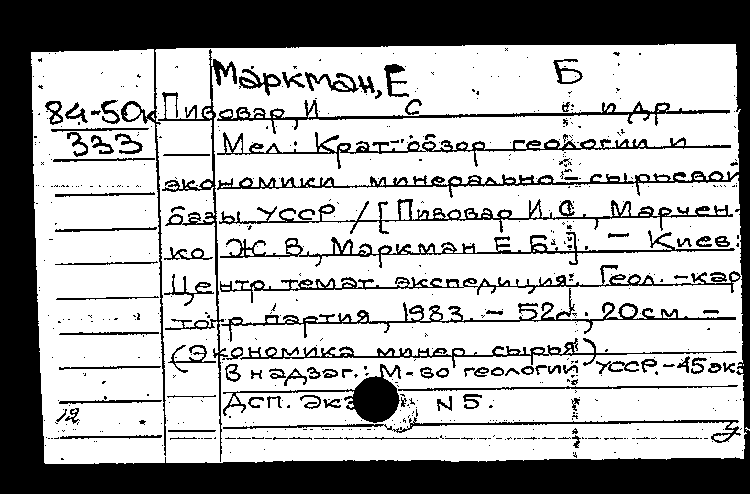 Маркман, Е Б
84-50к Пивовар, И С и др.
333 Мел: Крат. обзор геологии и
экономики минерально-сырьевой
базы УССР / [Пивовар И.С., Марчен-
ко Ж.В., Маркман Е.Б.]. – Киев:
Центр. темат. экспедиция. Геол.-кар
тогр. партия, 1983. – 52с.; 20см. –
(Экономика минер. сырья).
В надзаг.: М-во геологии УССР.-45экз
Дсп. Экз N 5.
12